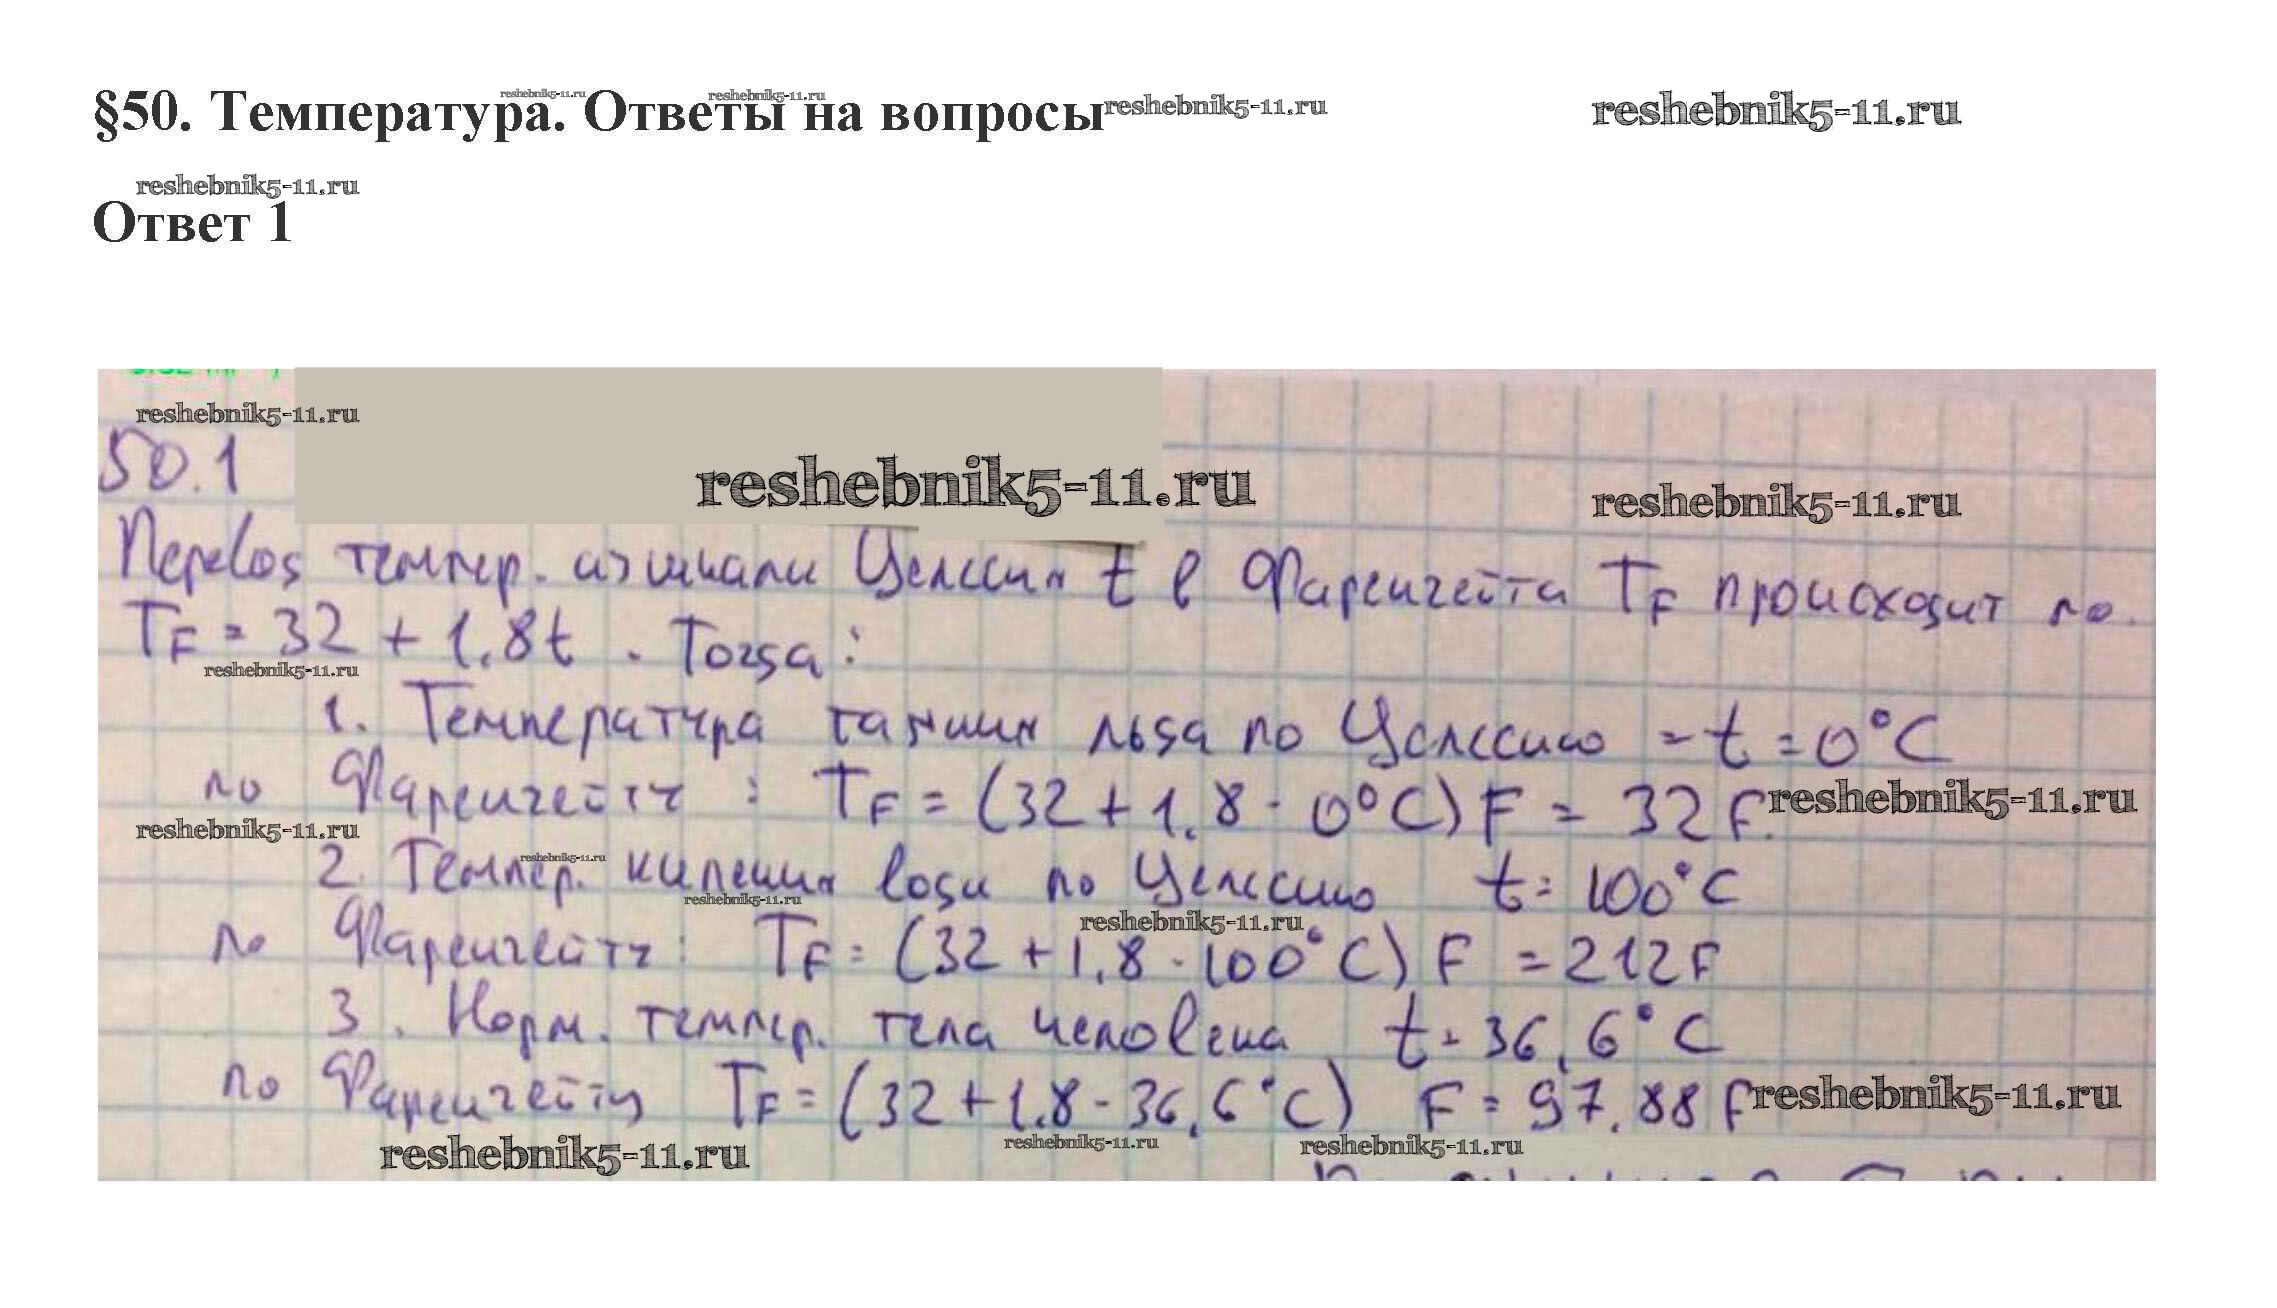 §50. Температура. Ответы на вопросы
reshebnik5-11.ru reshebnik5-11.ru reshebnik5-11.ru reshebnik5-11.ru
reshebnik5-11.ru
Ответ 1
reshebnik5-11.ru
50.1
reshebnik5-11.ru reshebnik5-11.ru
Перевод темпер. из шкалы Цельсия t в Фаренгейта T_F происходит по
T_F = 32 + 1.8t. Тогда:
reshebnik5-11.ru
1. Температура таяния льда по Цельсию - t = 0°C
по Фаренгейту: T_F = (32 + 1.8 · 0°C) F = 32 F.
reshebnik5-11.ru
reshebnik5-11.ru
reshebnik5-11.ru
2. Темпер. кипения воды по Цельсию t = 100°C
reshebnik5-11.ru
reshebnik5-11.ru
по Фаренгейту: T_F = (32 + 1.8 · 100°C) F = 212 F
3. Норм. темпер. тела человека t = 36,6°C
по Фаренгейту T_F = (32 + 1.8 · 36,6°C) F = 97.88 F
reshebnik5-11.ru
reshebnik5-11.ru reshebnik5-11.ru reshebnik5-11.ru